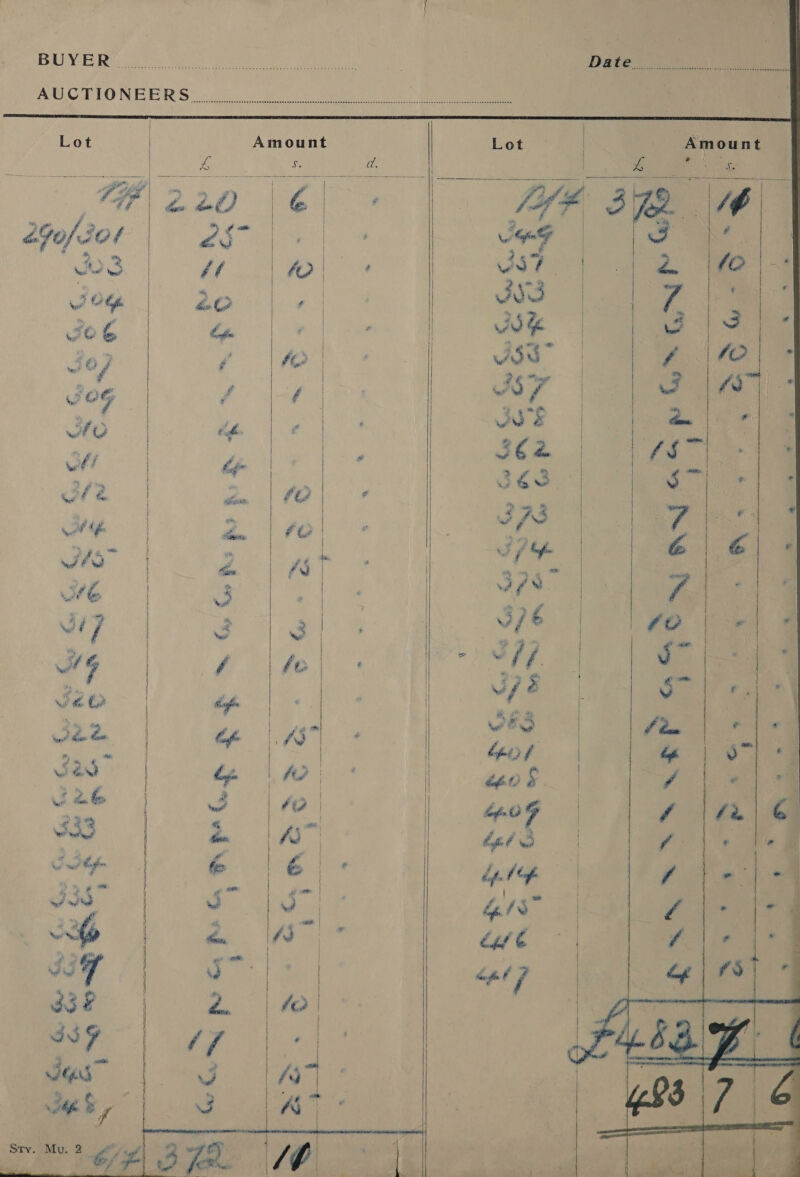 BUYER Date
AUCTIONEERS
Lot Amount Lot Amount
£ s. d. £ s.
220 6
290/301 25 - -
303 11 10 -
304 20 -
306 4 - -
307 1 10 -
309 1 1
310 4 -
311 4 - -
312 2 10 -
314 2 10 -
315 2 15 -
316 3 - -
317 3 3 -
319 1 10 -
320 4 -
322 4 15 -
325 4 10 -
326 3 10
333 2 15
334 6 6 -
335 5 5 -
336 2 15 -
337 5 -
338 2 10
339 17 -
345 3 15 -
348 3 15 -
Sty. Mu. 2 C/F 372 10
B/F 372 10
349 3 -
351 2 10 -
353 7 - -
354 3 3 -
355 1 10 -
357 3 15 -
358 2 - -
362 15 - -
363 5 - -
373 7 - -
374 6 6 -
375 7 - -
376 10 - -
377 5 - -
378 5 - -
383 12 - -
401 4 5 -
408 1 - -
409 1 12 6
413 1 - -
414 1 - -
415 1 - -
416 1 - -
417 4 15 -
£483 7 6
483 7 6